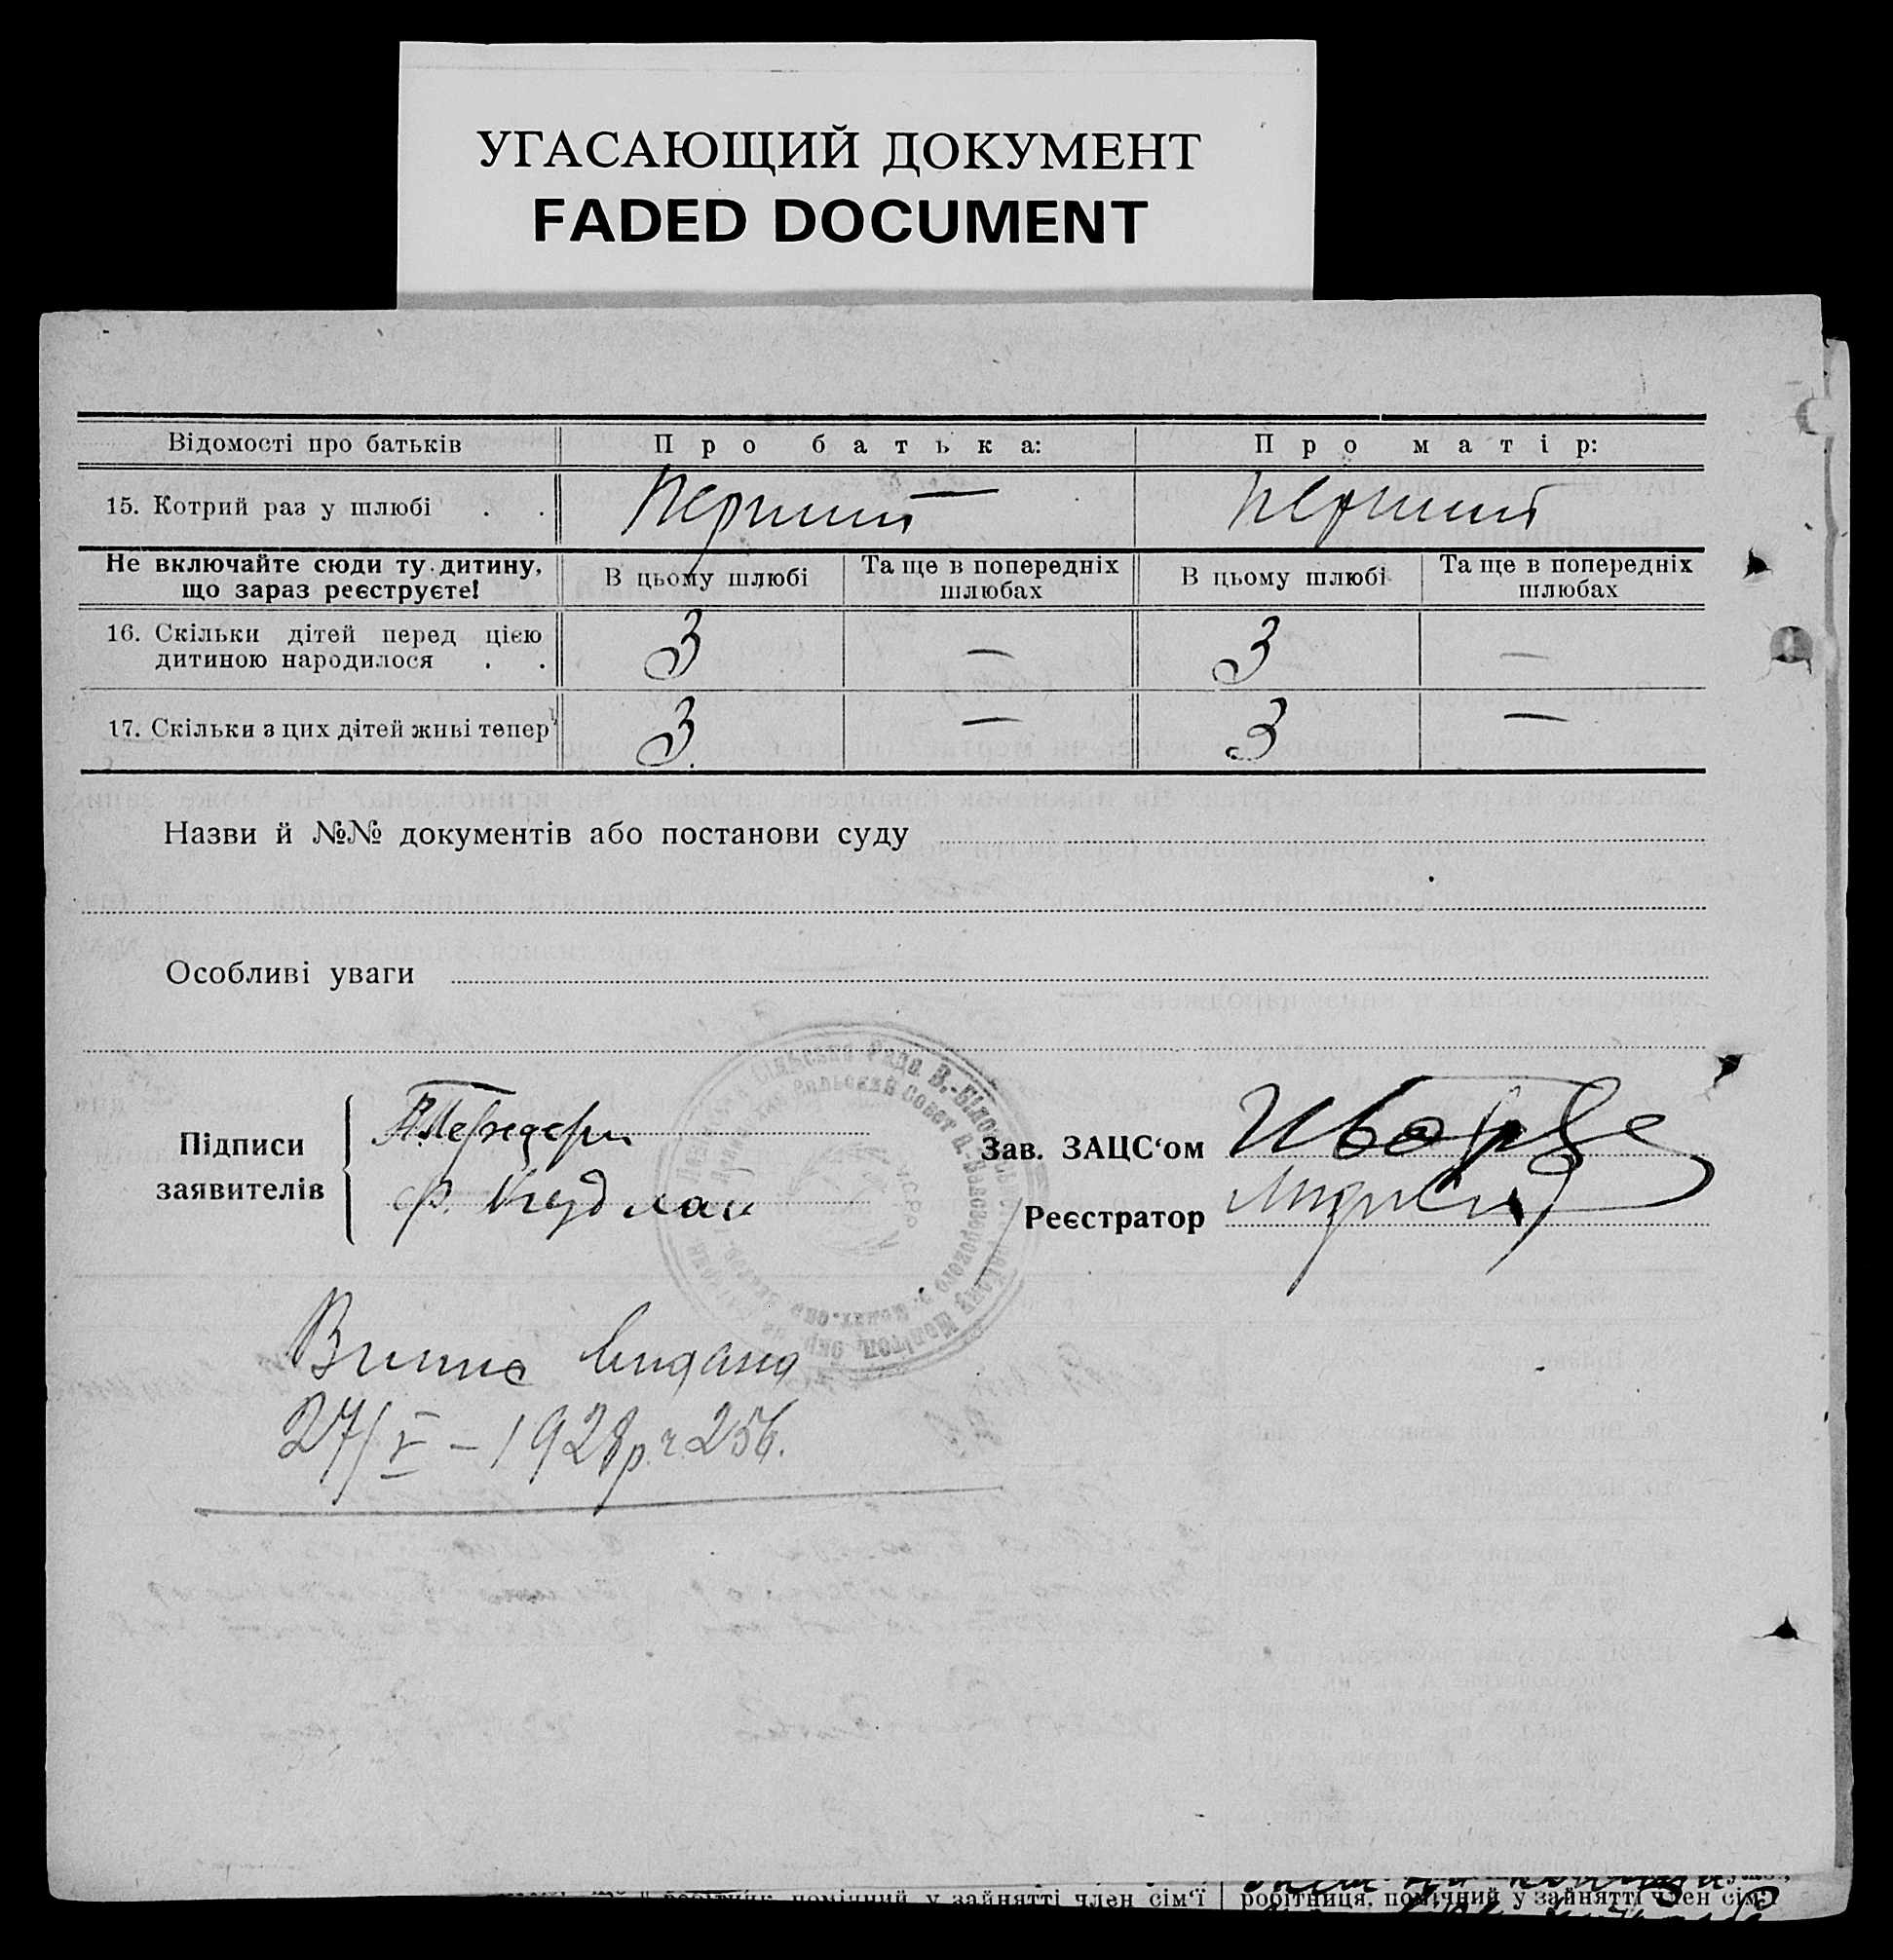 УГАСАЮЩИЙ ДОКУМЕНТ
FADED DOCUMENT
Відомості про батьків
Про батька:
Про матір:
15. Котрий раз у шлюбі . .
Перший
Перший
Не включайте сюди ту дитину,
що зараз реєструєте!
В цьому шлюбі
Та ще в попередніх
шлюбах
В цьому шлюбі
Та ще в попередніх
шлюбах
16. Скільки дітей перед цією
дитиною народилося . .
3
—
3
—
17. Скільки з цих дітей живі тепер
3
—
3
—
Назви й №№ документів або постанови суду
Особливі уваги
Підписи
заявителів
Ф. Кудлай
Зав. ЗАЦС‘ом
Реєстратор
Випис видано
27/V – 1928 р. ч. 256.
робітник, помічний у зайнятті член сім‘ї
робітниця, помічний у зайнятті член сім‘ї